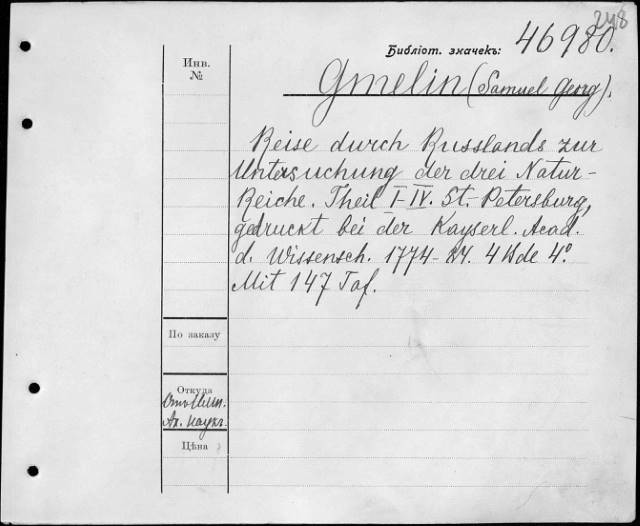 248
Библіот. значекъ: 46980.
Инв.
№
Gmelin (Samuel Georg).
Reise durch Russlands zur
Untersuchung der drei Natur-
Reiche. Theil I-IV. St.-Petersburg,
gedruckt bei der Kayserl. Acad.
d. Wissensch. 1774-84. 4 Bde 4º
Mit 147 Taf.
По заказу
Откуда
Ак. наукъ.
Цѣна